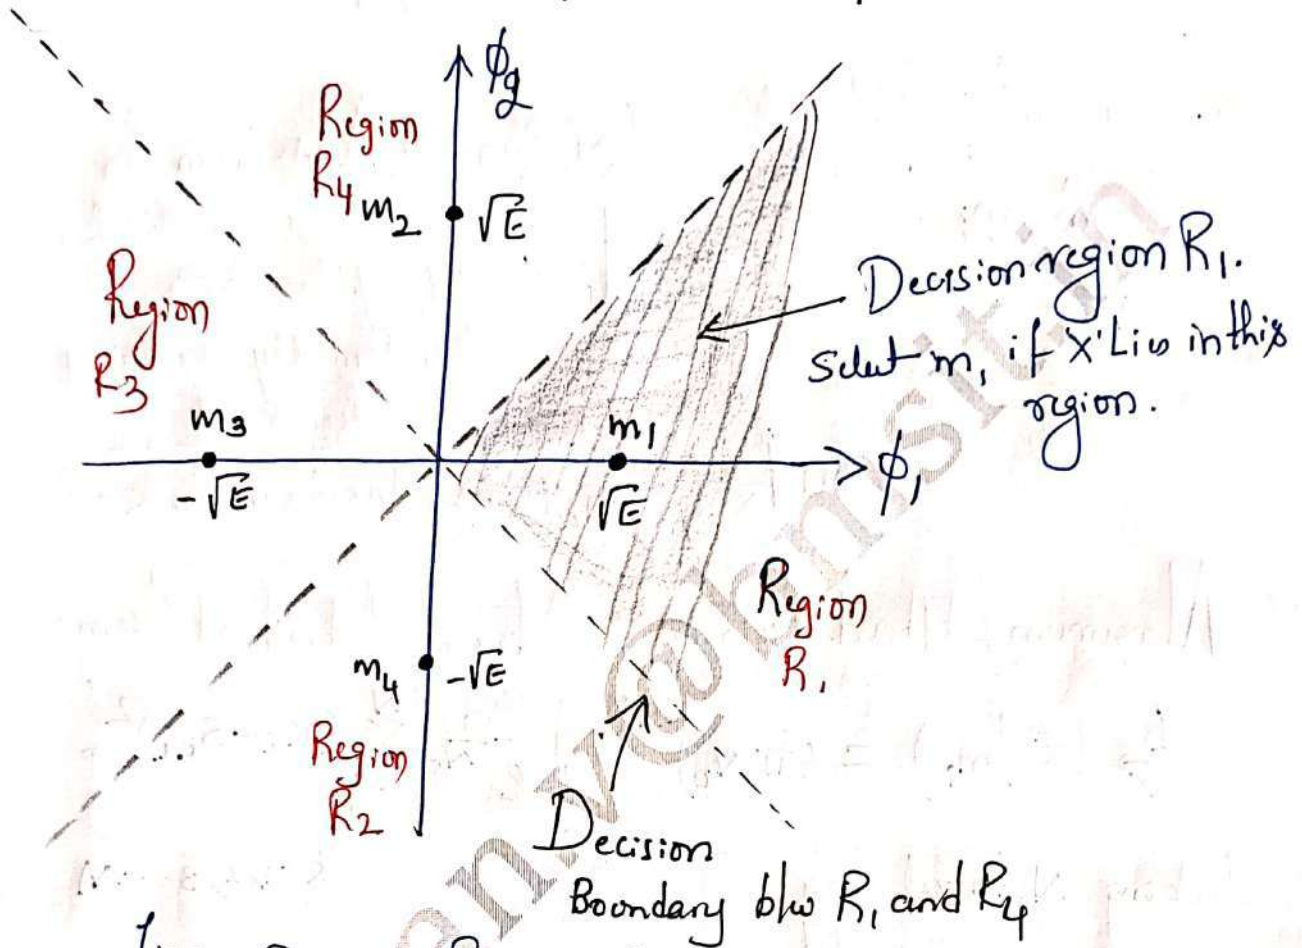 ϕ2
Region
R4 m2
√E
Region
R3
Decision region R1.
Select m1 if X Lies in this
region.
m3
m1
-√E
√E
ϕ1
Region
R1
m4
-√E
Region
R2
Decision
Boundary b/w R1 and R4
@bmsit.in